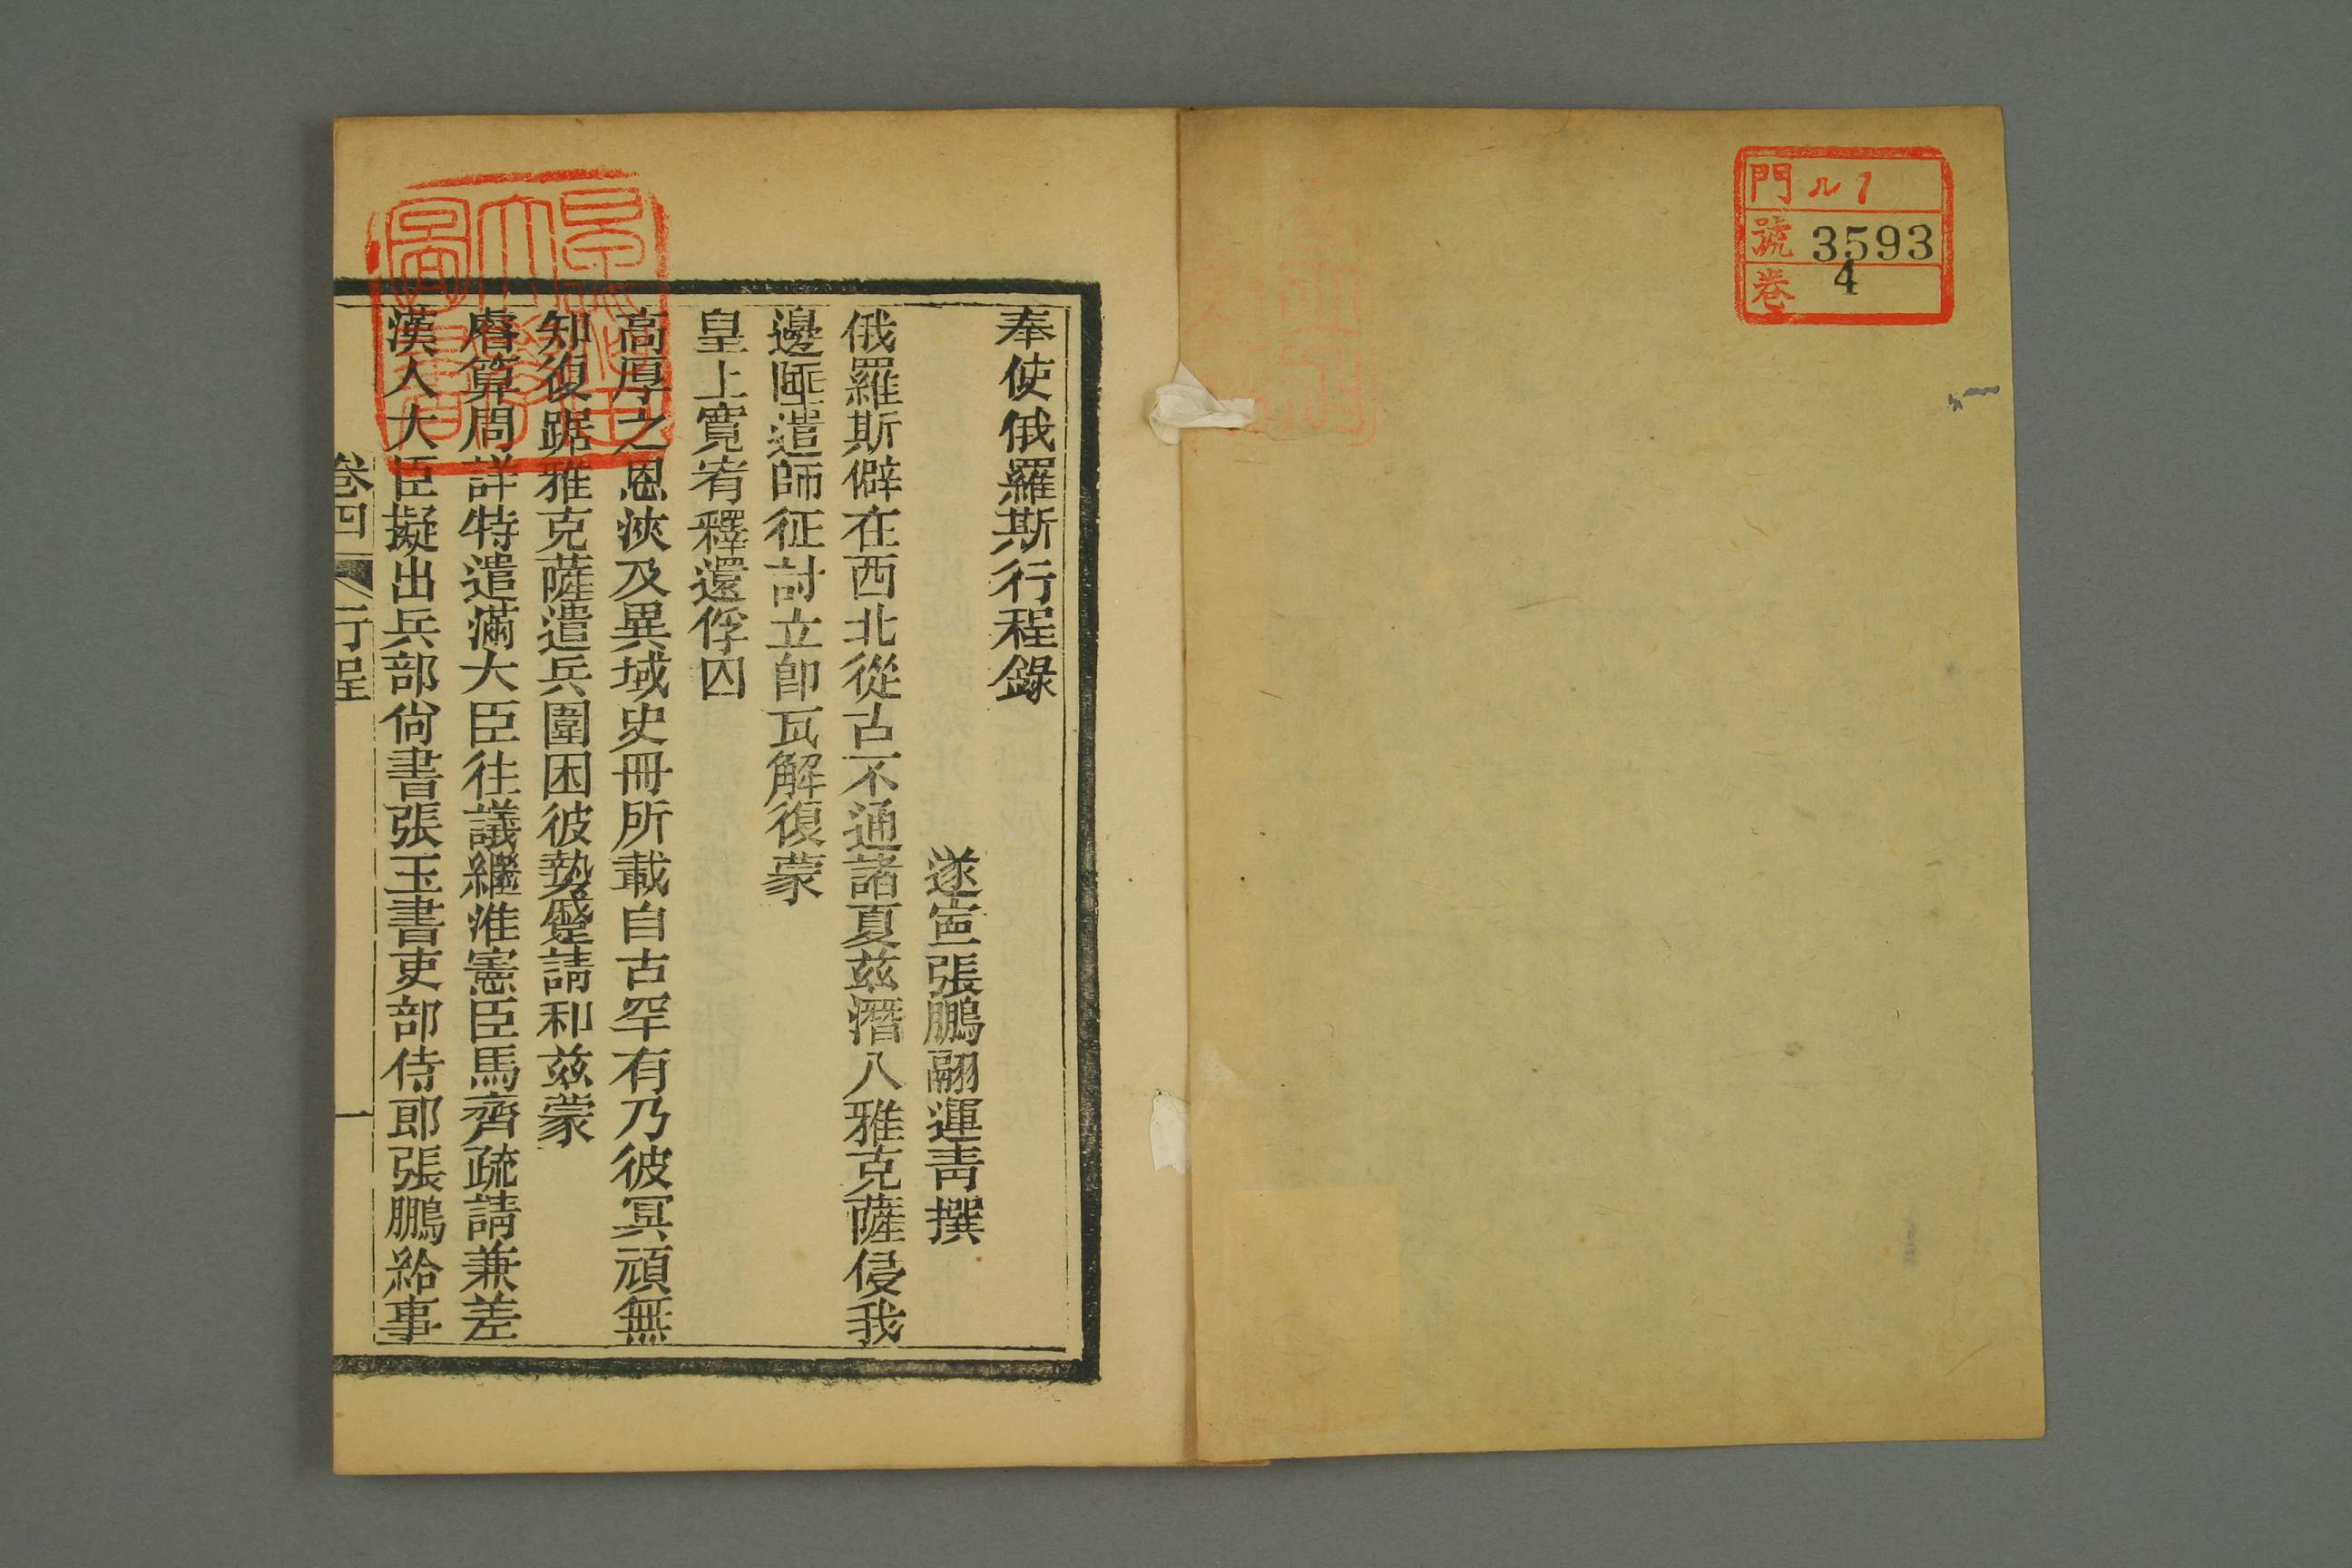 門 ル1
號 3593
卷 4
奉使俄羅斯行程錄
遂寍張鵬翮運靑撰
俄羅斯僻在西北從古不通諸夏玆潛入雅克薩侵我
邊陲遣師征討立卽瓦解復蒙
皇上寬宥釋還俘囚
高厚之恩浹及異域史冊所載自古罕有乃彼冥頑無
知復踞雅克薩遣兵圍困彼勢蹙請和玆蒙
睿算周詳特遣滿大臣往議繼准憲臣馬齊疏請兼差
漢人大臣擬出兵部尙書張玉書吏部侍郎張鵬給事
卷四 行程 一